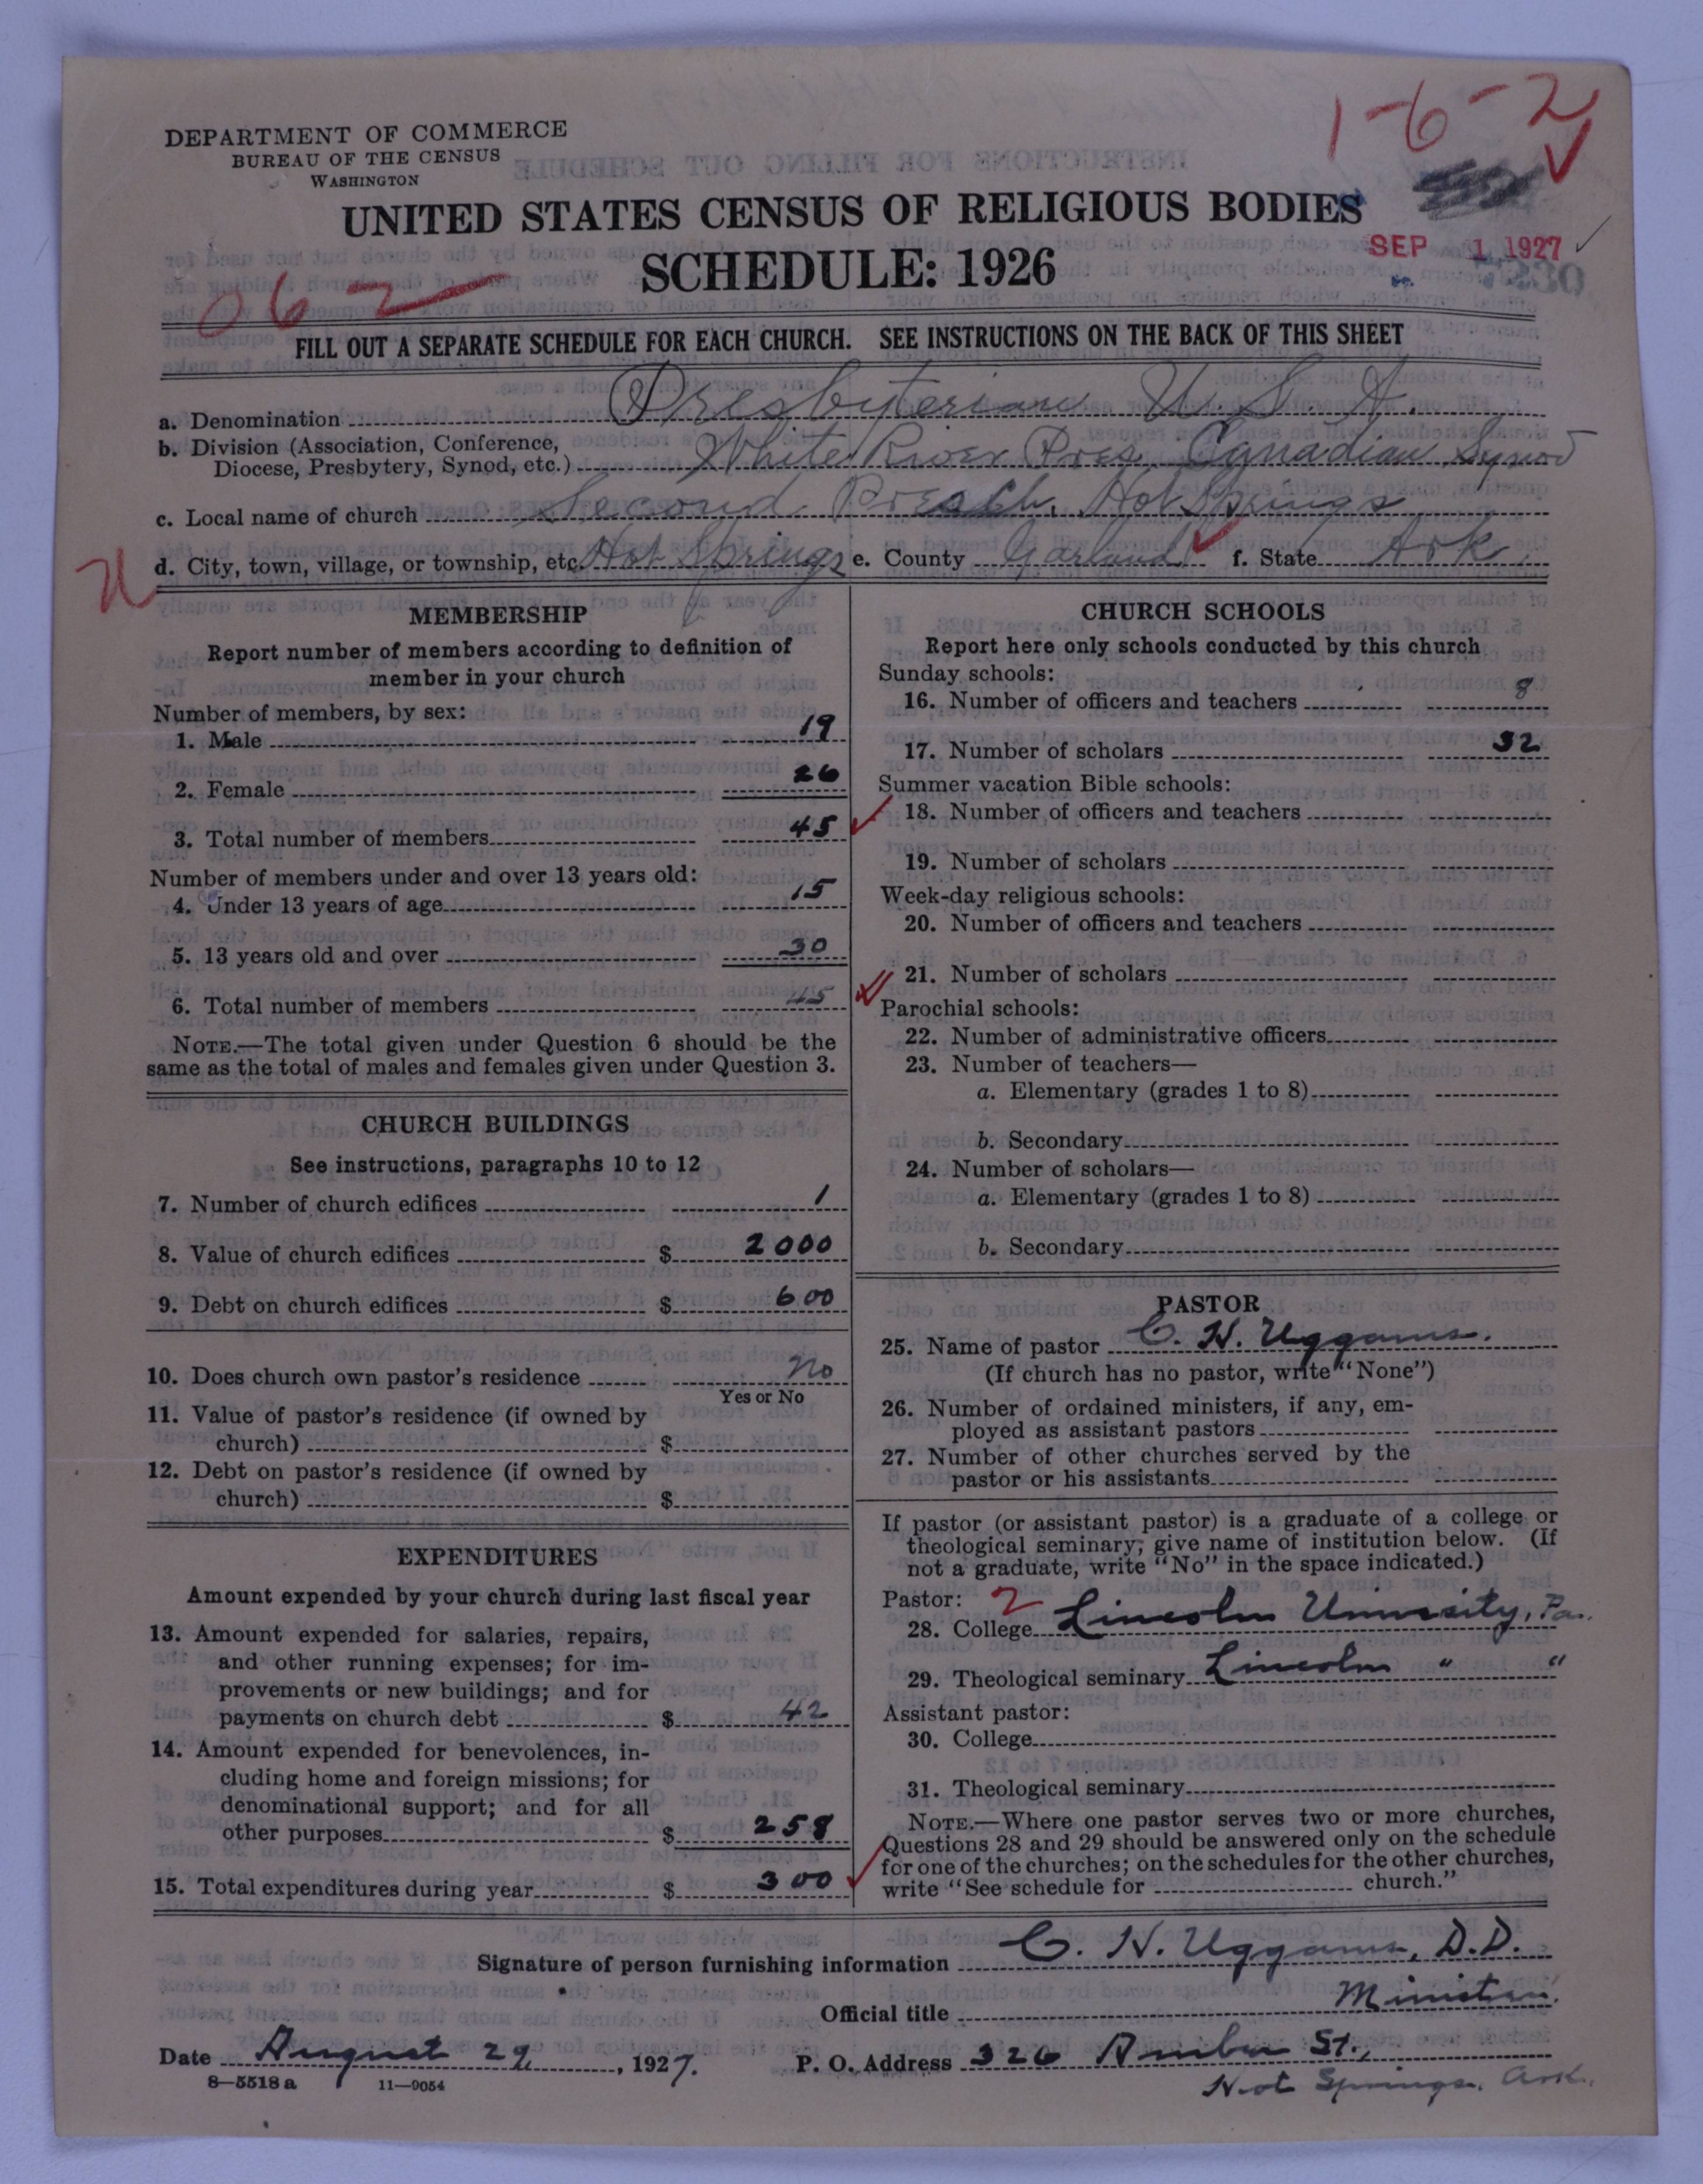 1-6-2
DEPARTMENT OF COMMERCE
BUREAU OF THE CENSUS
WASHINGTON
UNITED STATES CENSUS OF RELIGIOUS BODIES
SCHEDULE: 1926
SEP 1 1927
062
FILL OUT A SEPARATE SCHEDULE FOR EACH CHURCH. SEE INSTRUCTIONS ON THE BACK OF THIS SHEET
a. Denomination Presbyterian U. S. A.
b. Division (Association, Conference,
Diocese, Presbytery, Synod, etc.) White River Pres. Canadian Synod
c. Local name of church Second Hot Springs
d. City, town, village, or township, etc. Hot Springs e. County Garland f. State Ark.
MEMBERSHIP
Report number of members according to definition of
member in your church
Number of members, by sex:
1. Male 19
2. Female 26
3. Total number of members 45
Number of members under and over 13 years old:
4. Under 13 years of age 15
5. 13 years old and over 30
6. Total number of members 45
NOTE.—The total given under Question 6 should be the
same as the total of males and females given under Question 3.
CHURCH BUILDINGS
See instructions, paragraphs 10 to 12
7. Number of church edifices 1
8. Value of church edifices $ 2000
9. Debt on church edifices $ 600
10. Does church own pastor's residence No
Yes or No
11. Value of pastor's residence (if owned by
church) $
12. Debt on pastor's residence (if owned by
church) $
EXPENDITURES
Amount expended by your church during last fiscal year
13. Amount expended for salaries, repairs,
and other running expenses; for im-
provements or new buildings; and for
payments on church debt $ 42
14. Amount expended for benevolences, in-
cluding home and foreign missions; for
denominational support; and for all
other purposes $ 258
15. Total expenditures during year $ 300
CHURCH SCHOOLS
Report here only schools conducted by this church
Sunday schools:
16. Number of officers and teachers 8
17. Number of scholars 32
Summer vacation Bible schools:
18. Number of officers and teachers
19. Number of scholars
Week-day religious schools:
20. Number of officers and teachers
21. Number of scholars
Parochial schools:
22. Number of administrative officers
23. Number of teachers—
a. Elementary (grades 1 to 8)
b. Secondary
24. Number of scholars—
a. Elementary (grades 1 to 8)
b. Secondary
PASTOR
25. Name of pastor C. H. Uggams.
(If church has no pastor, write "None")
26. Number of ordained ministers, if any, em-
ployed as assistant pastors
27. Number of other churches served by the
pastor or his assistants
If pastor (or assistant pastor) is a graduate of a college or
theological seminary, give name of institution below. (If
not a graduate, write "No" in the space indicated.)
Pastor: 2
28. College Lincoln University, Pa.
29. Theological seminary Lincoln " "
Assistant pastor:
30. College
31. Theological seminary
NOTE.—Where one pastor serves two or more churches,
Questions 28 and 29 should be answered only on the schedule
for one of the churches; on the schedules for the other churches,
write "See schedule for church."
Signature of person furnishing information C. H. Uggams, D.D.
Official title Minister.
Date August 29, 1927. P. O. Address 326 St.,
8—5518 a 11—9054 Hot Springs, Ark.